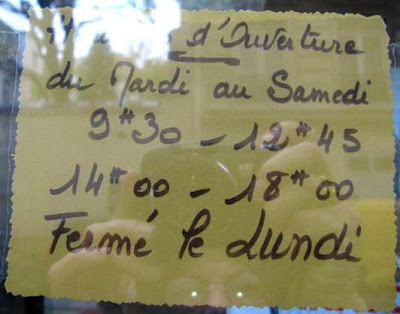 d'Ouverture
du Mardi au Samedi
9H30 - 12H45
14H00 - 18H00
Fermé le Lundi